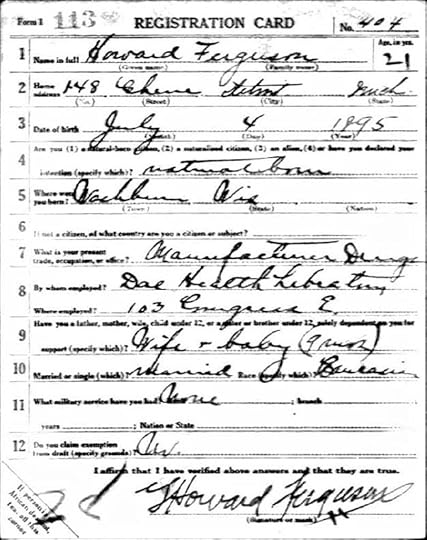 Form 1 113 REGISTRATION CARD No. 404
1 Name in full Howard Ferguson Age, in yrs. 21
(Given name) (Family name)
2 Home address 148 Chene Detroit Mich.
(No.) (Street) (City) (State)
3 Date of birth July 4 1895
(Month) (Day) (Year)
4 Are you (1) a natural-born citizen, (2) a naturalized citizen, (3) an alien, (4) or have you declared your
intention (specify which)? natural born
5 Where were you born? Washburn Wis
(Town) (State) (Nation)
6 If not a citizen, of what country are you a citizen or subject?
7 What is your present trade, occupation, or office? Manufacturer Drugs
8 By whom employed? Dae Health Laboratory
Where employed? 103 Congress E.
9 Have you a father, mother, wife, child under 12, or a sister or brother under 12, solely dependent on you for
support (specify which)? Wife + baby (9 mos)
10 Married or single (which)? married Race (specify which)? Caucasian
11 What military service have you had? None ; branch
years ; Nation or State
12 Do you claim exemption from draft (specify grounds)?
I affirm that I have verified above answers and that they are true.
Howard Ferguson
(Signature or mark)
If person is of African descent, tear off this corner